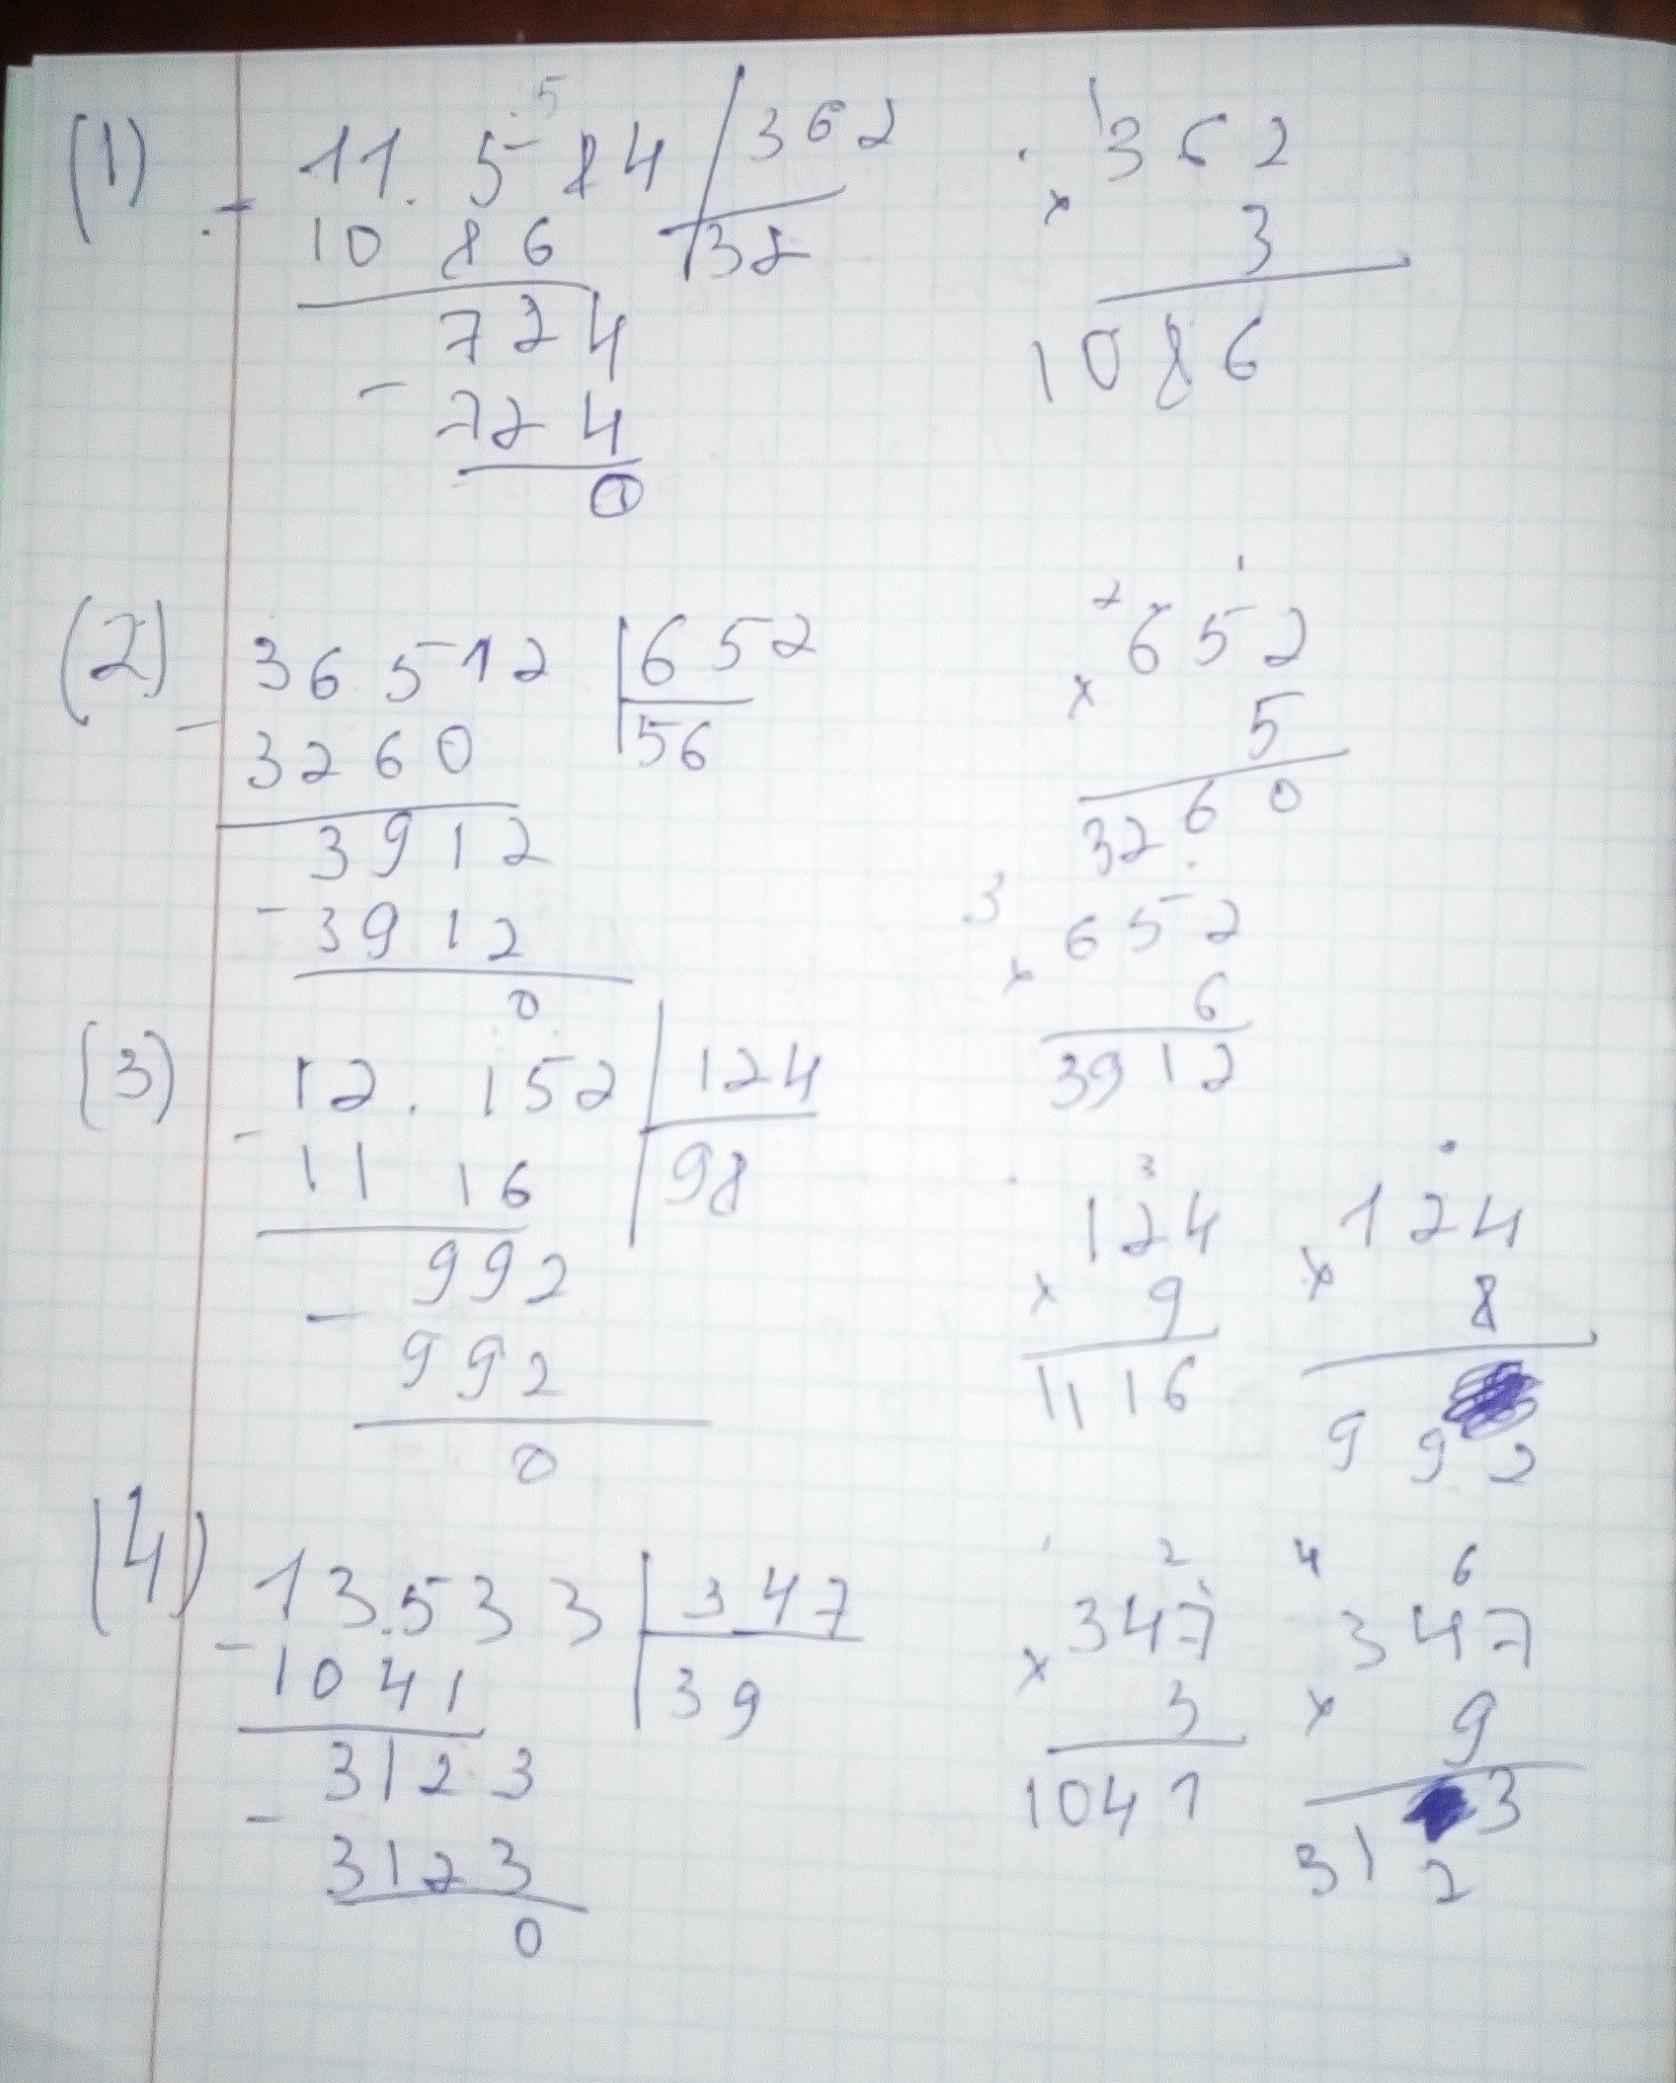 5
(1) - 11.584 362 1
10 86 32 . 362
724 × 3
- 724 1086
0
(2) 36512 652 2 1
- 3260 56 × 652
3912 5
- 3912 3260
0 3
× 652
6
3912
(3) 12.152 124
- 11 16 98 3
992 124 124
- 992 × 9 × 8
0 1116 992
(4) 13.533 347 2 4 6
- 1041 39 347 347
3123 × 3 × 9
- 3123 1041 3123
0